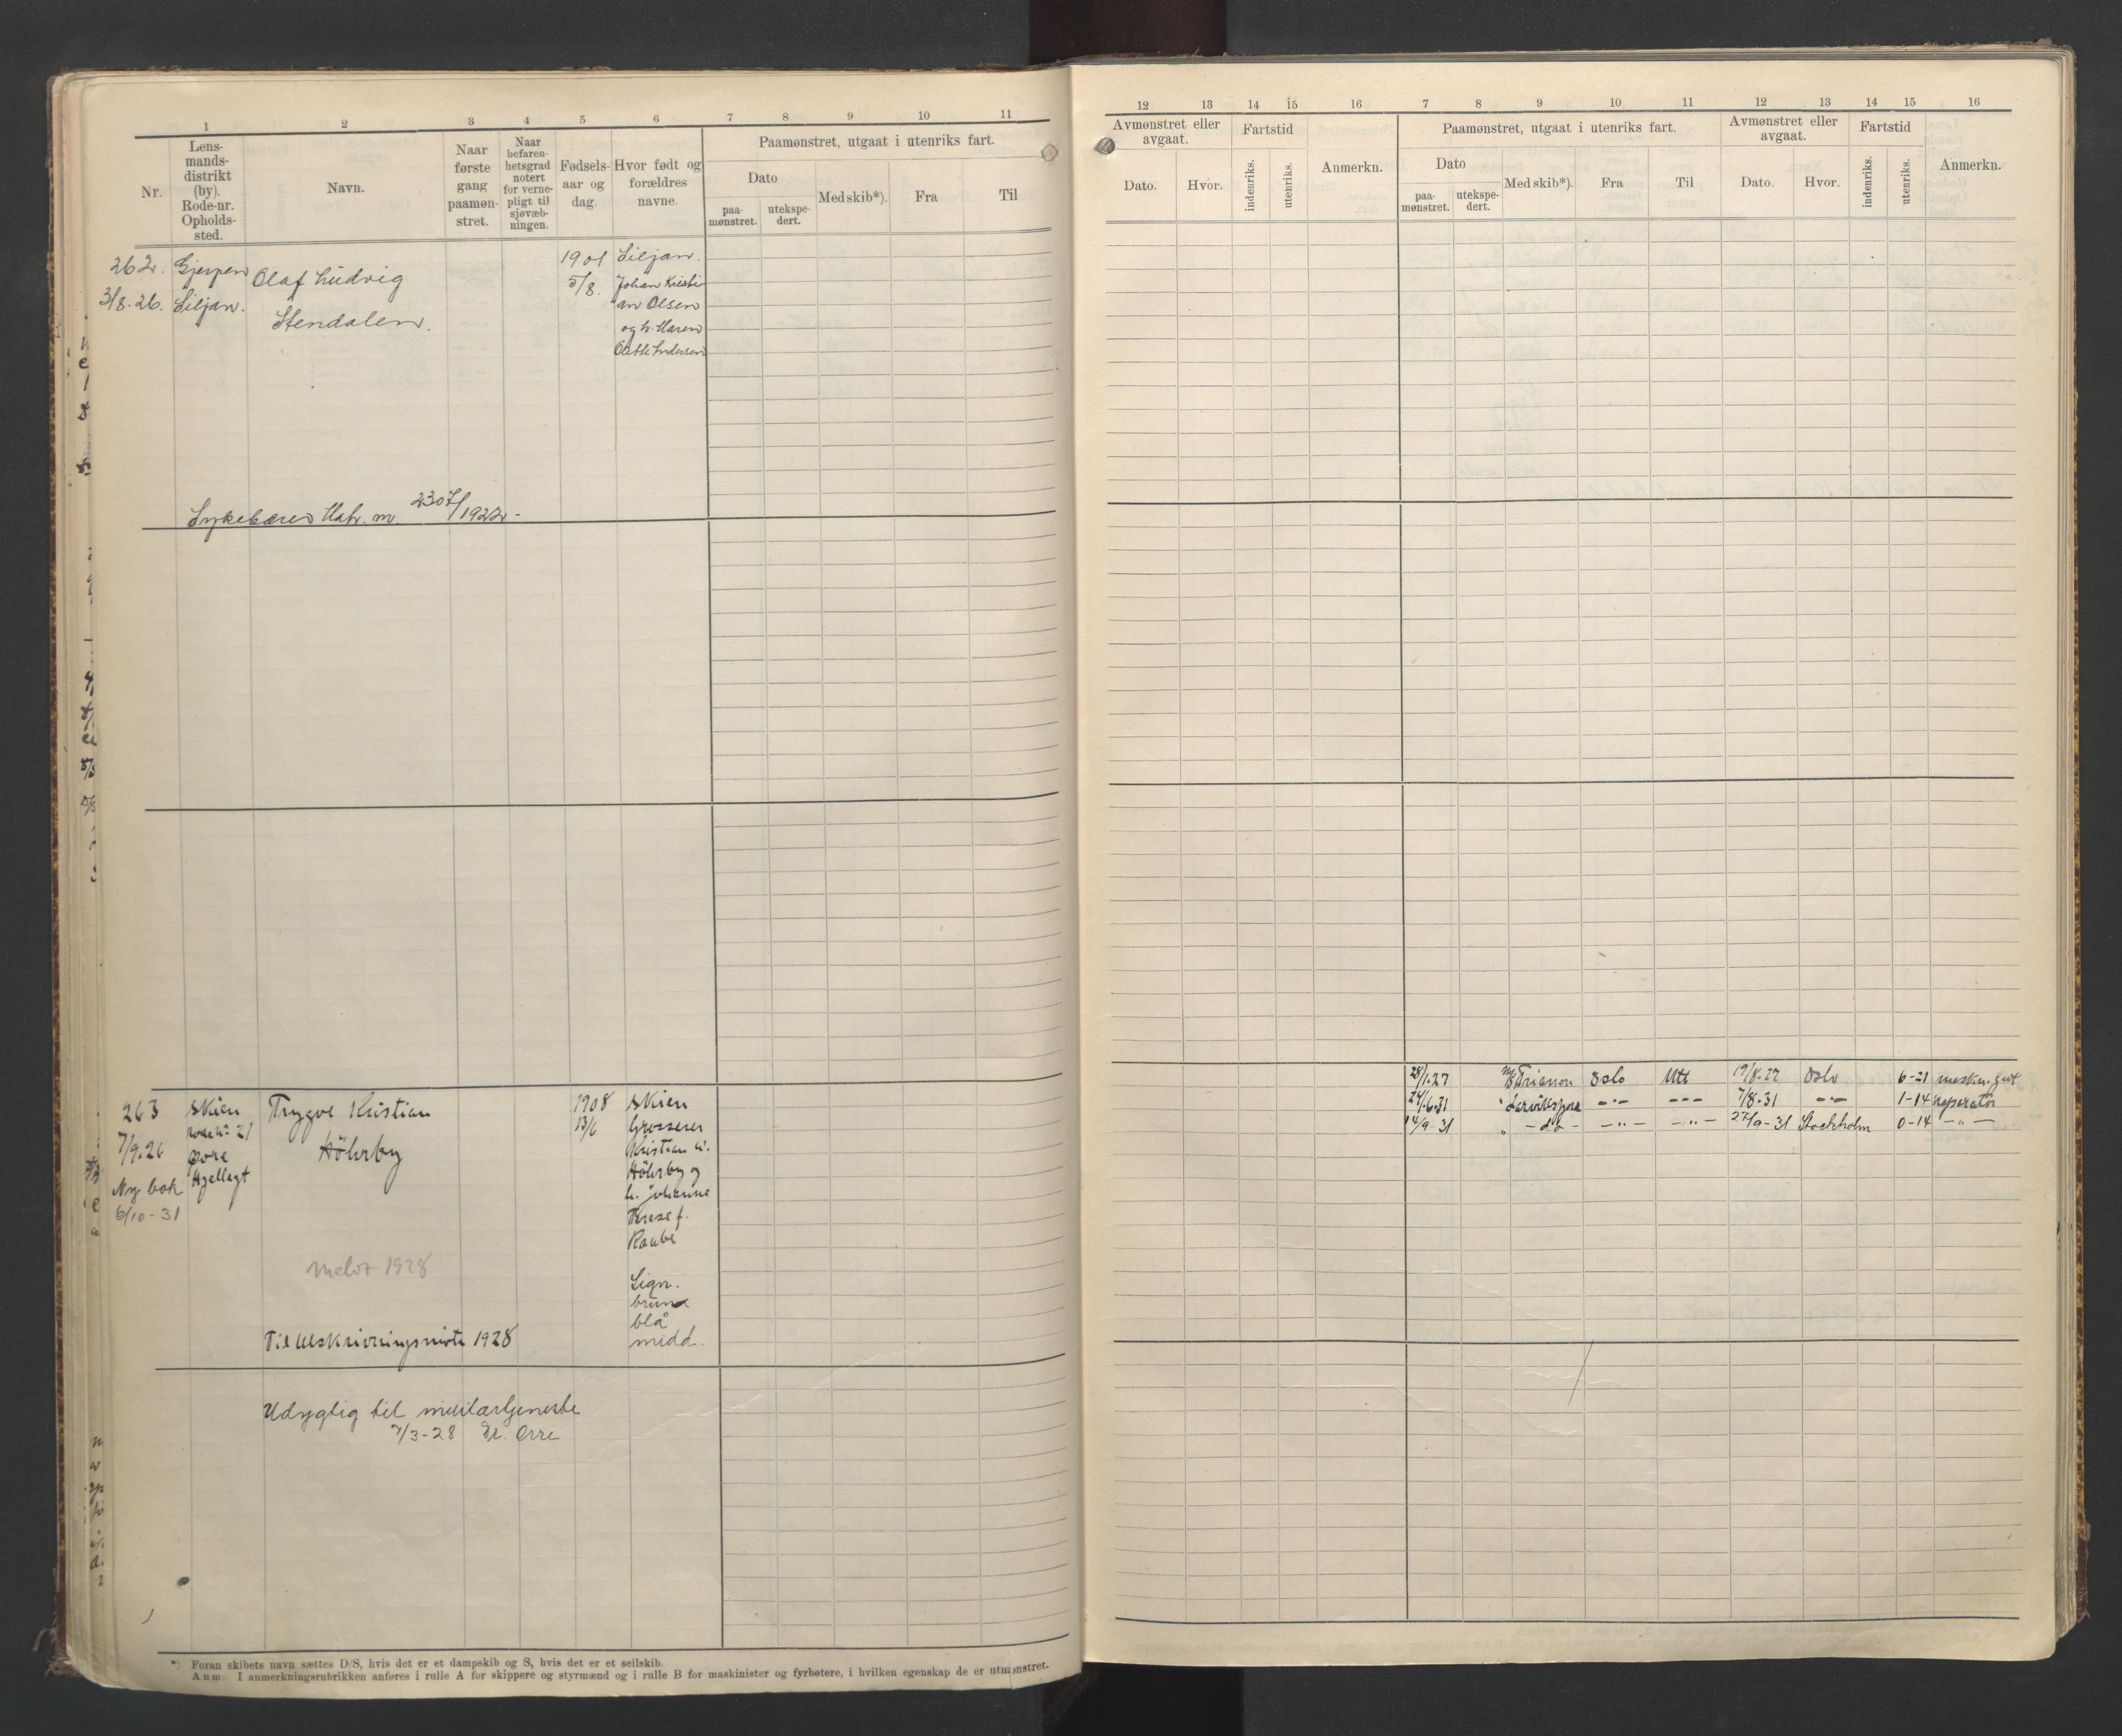 1 2 3 4 5 6 7 8 9 10 11
Nr.
Lens-
mands-
distrikt
(by).
Rode-nr.
Opholds-
sted.
Navn.
Naar
første
gang
paamøn-
stret.
Naar
befaren-
hetsgrad
notert
for verne-
pligt til
sjøvæb-
ningen.
Fødsels-
aar og
dag.
Hvor født og
forældres
navne.
Paamønstret, utgaat i utenriks fart.
Dato
paa-
mønstret.
utekspe-
dert.
Med skib*).
Fra
Til
262.
3/8.26.
Gjerpen
Siljan.
Olaf Ludvig
Stendalen.
1901
5/8.
Siljan.
Johan Kristi
an Olsen
og h. Maren
Olette Andersen
Sykebærer Matr. nr. 2307/1922.-
263
7/9.26
Ny bok
6/10-31
Skien
rode nr 21
øvre
Hjellegt
Trygve Kristian
Höhrby
1908
13/6
Skien
Grosserer
Kristian W.
Höhrby og
h. Johanne
Terese f.
Raabe
Sign.
brune
blå
midd.
Melot 1928
Til utskrivningsmøte 1928
Udygtig til militærtjeneste
7/3-28 Dr. Orre
*) Foran skibets navn sættes D/S, hvis det er et dampskib og S, hvis det er et seilskib.
Anm. I anmerkningsrubrikken anføres i rulle A for skippere og styrmænd og i rulle B for maskinister og fyrbøtere, i hvilken egenskap de er utmønstret.
12 13 14 15 16 7 8 9 10 11 12 13 14 15 16
Avmønstret eller
avgaat.
Dato.
Hvor.
Fartstid
indenriks.
utenriks.
Anmerkn.
Paamønstret, utgaat i utenriks fart.
Dato
paa-
mønstret.
utekspe-
dert.
Med skib*).
Fra
Til
Avmønstret eller
avgaat.
Dato.
Hvor.
Fartstid
indenriks.
utenriks.
Anmerkn.
28/1.27 M/S Trianon Oslo Utl 19/8.27 Oslo 6-21 maskn.gut
24/6.31 " Larviksfjord -"- -"- 7/8.31 -"- 1-14 reparatør
14/9-31 " -do- -"- -"- 27/9-31 Stockholm 0-14 -"-